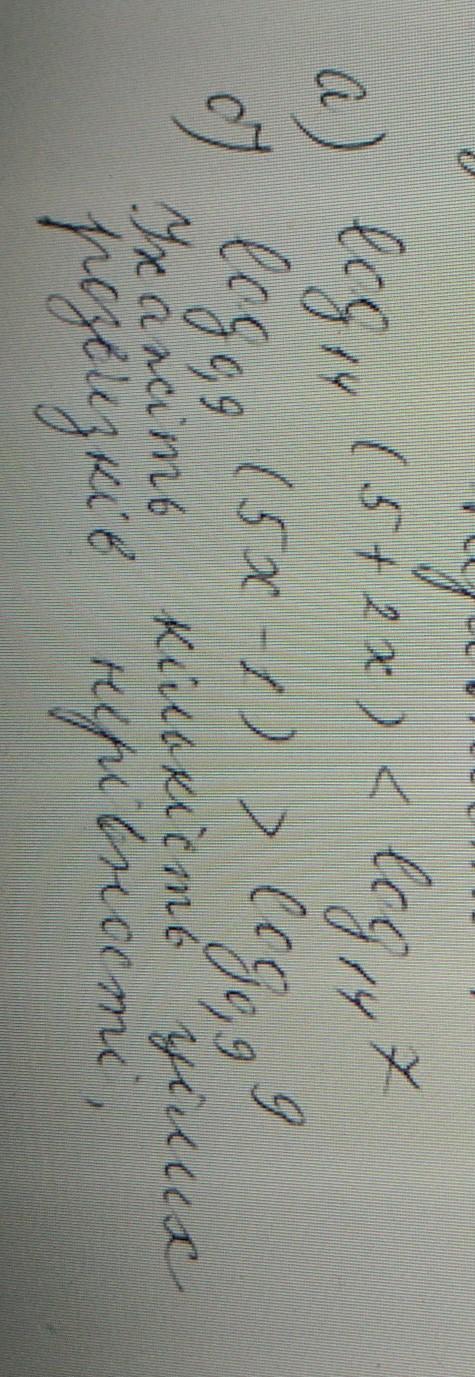 а) log₁₄ (5 + 2x) < log₁₄ 7
б) log₀,₉ (5x - 1) > log₀,₉ 9
Укажіть кількість цілих
розв'язків нерівності,